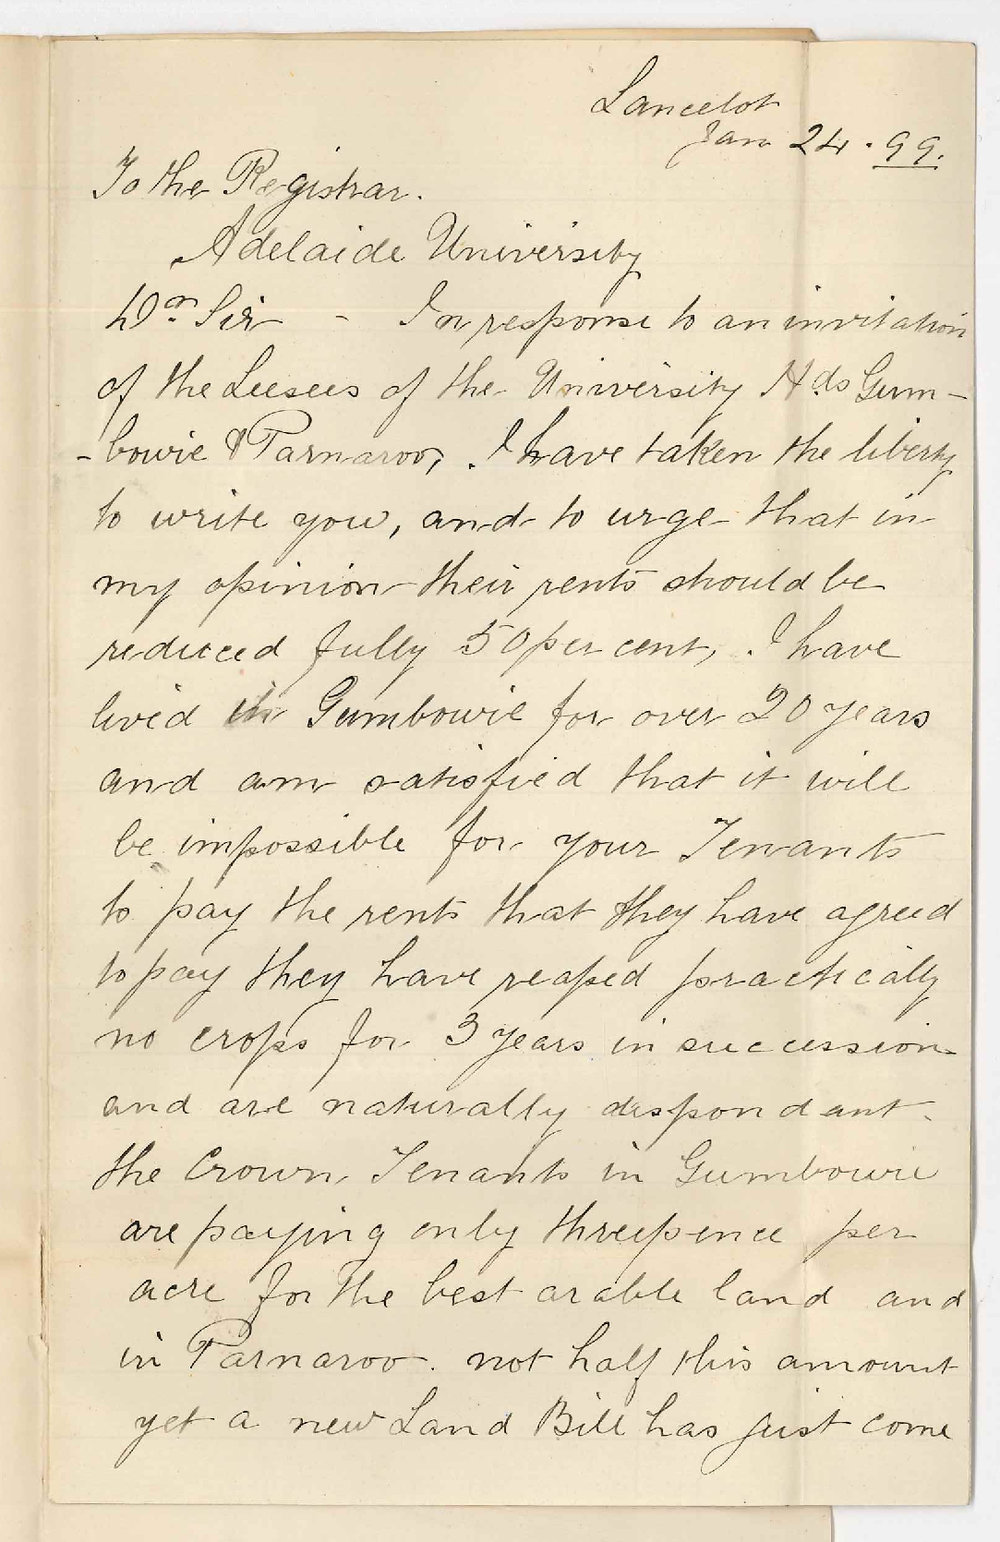 Lancelot
Jan 24. 99.
To the Registrar.
Adelaide University
Dr. Sir - In response to an invitation
of the Leesees of the University Hds Gum-
-bowie & Parnaroo, I have taken the liberty
to write you, and to urge that in
my opinion their rents should be
reduced fully 50 per cent, I have
lived in Gumbowie for over 20 years
and am satisfied that it will
be impossible for your Tenants
to pay the rents that they have agreed
to pay they have reaped practically
no crops for 3 years in succession
and are naturally despondant.
the Crown Tenants in Gumbowie
are paying only threepence per
acre for the best arable land and
in Parnaroo. not half this amount
yet a new Land Bill has just come